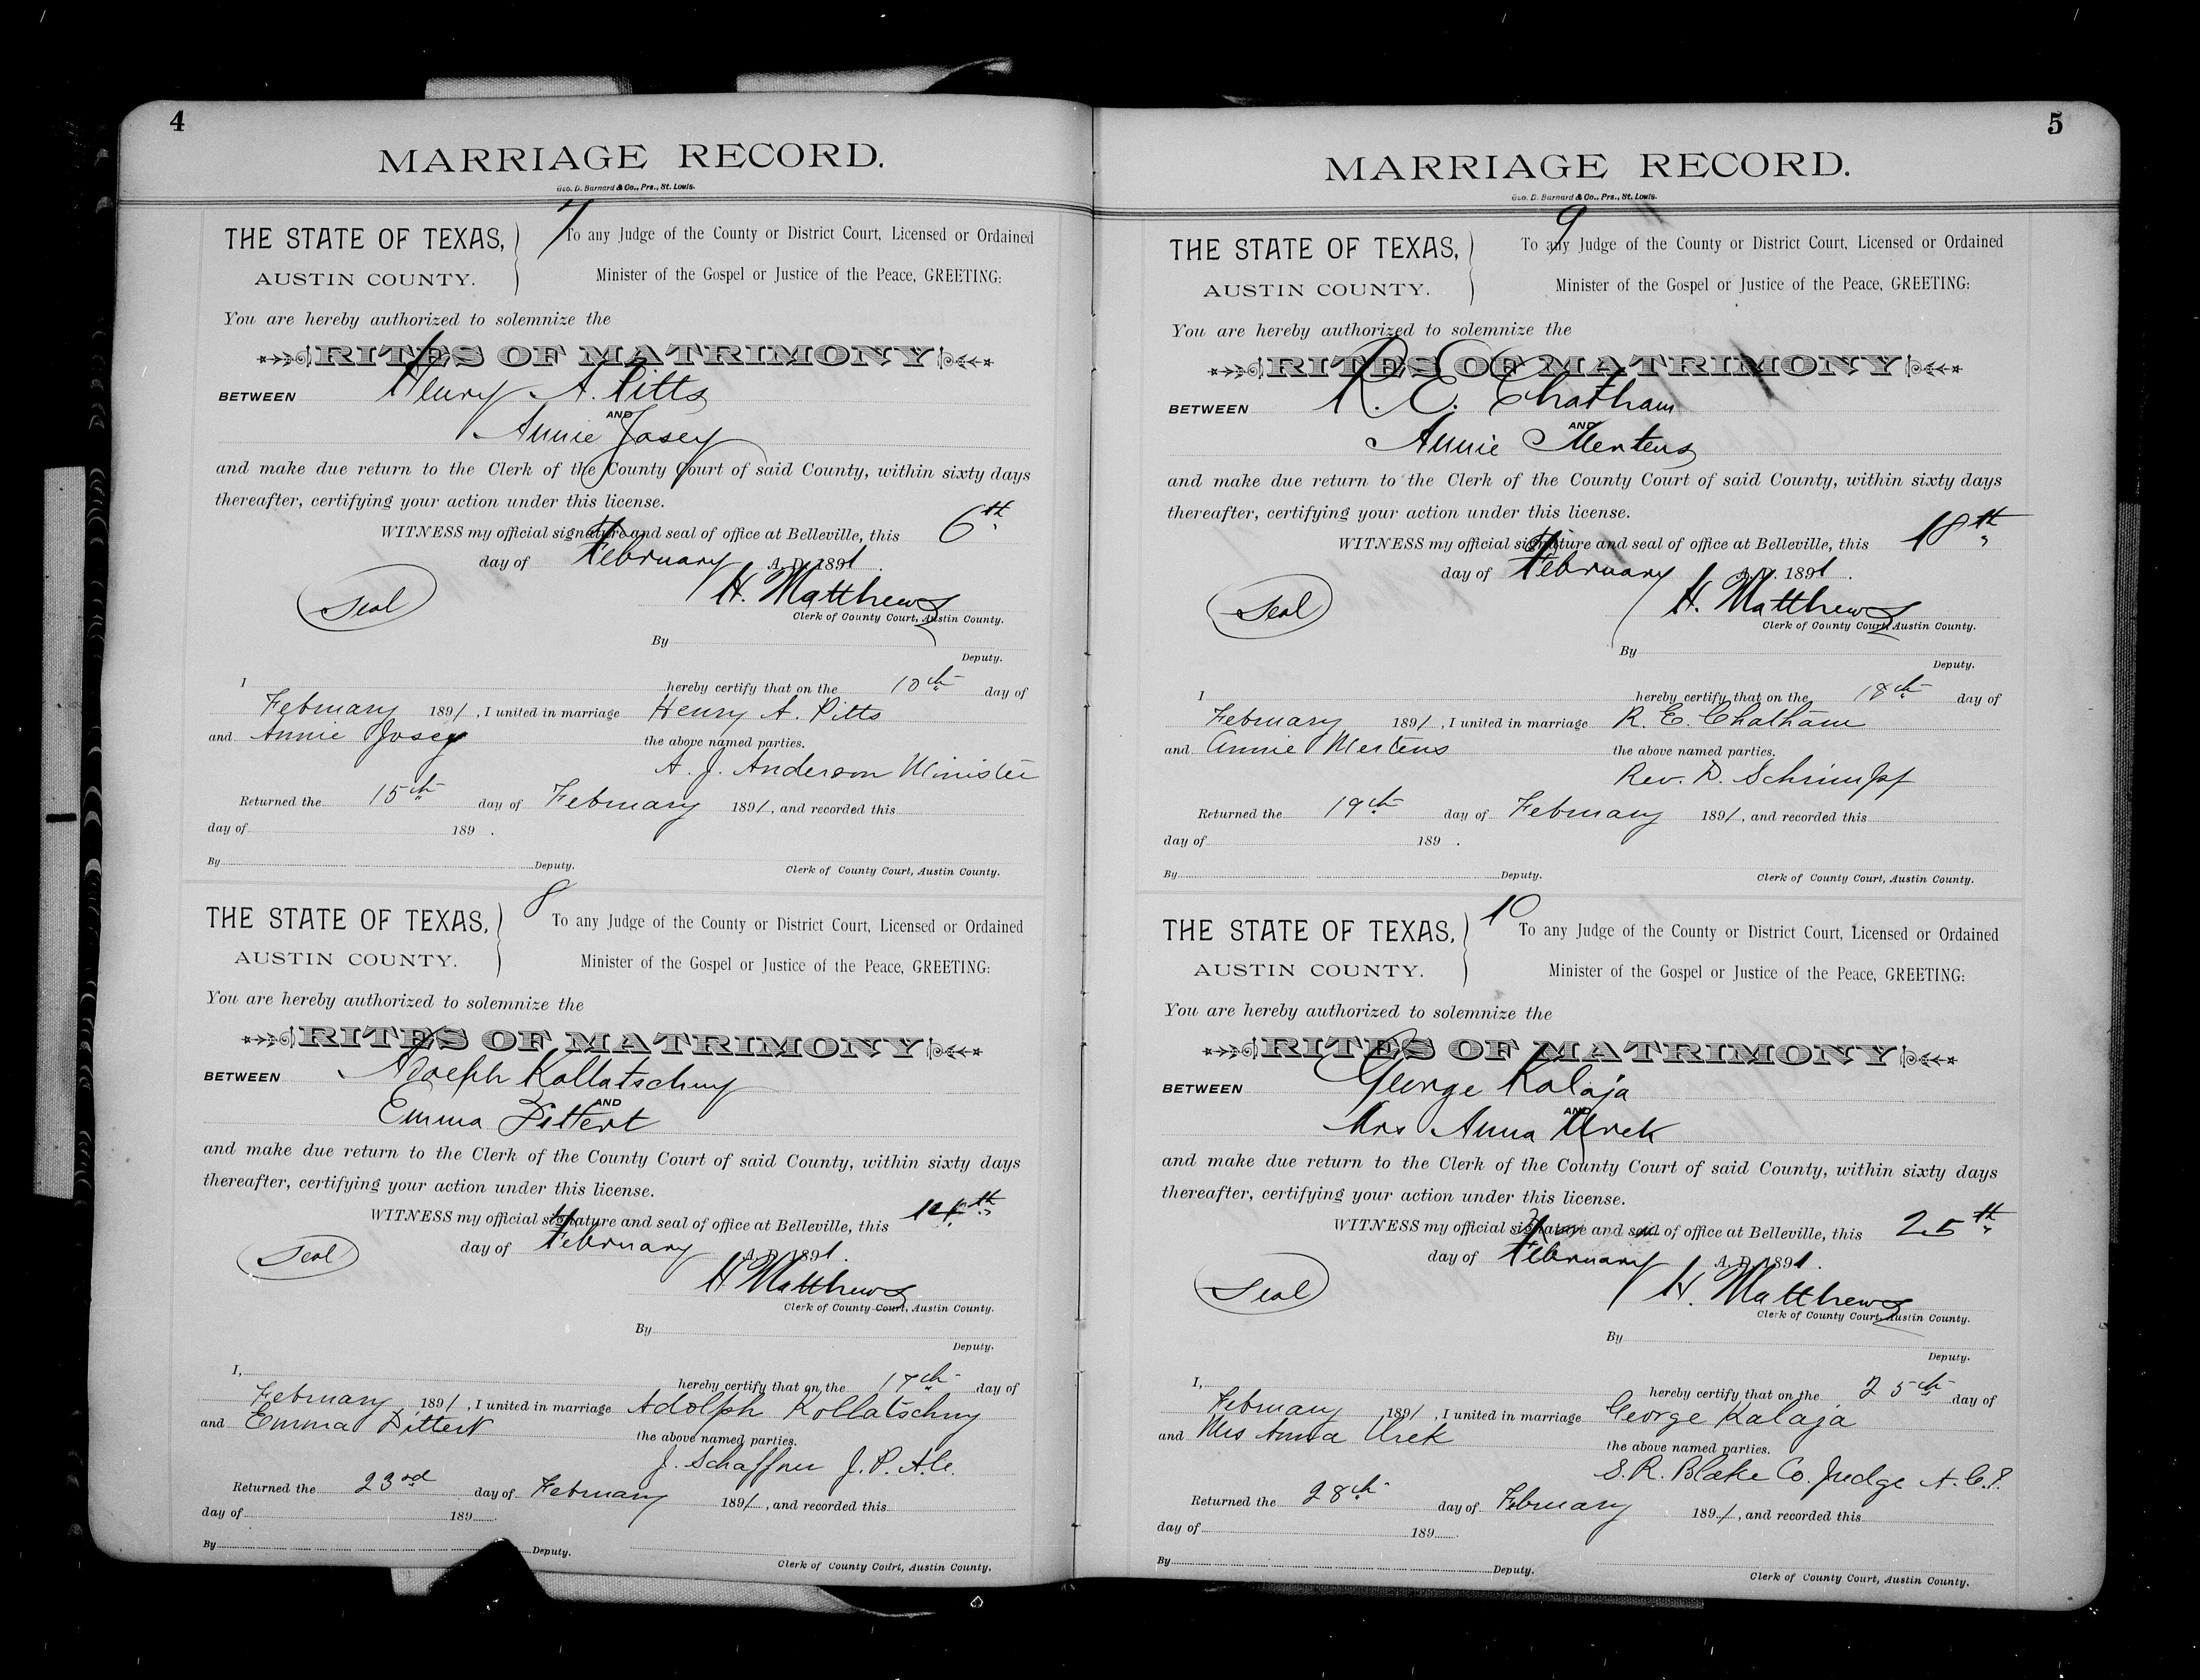 4
MARRIAGE RECORD.
Geo. D. Barnard & Co., Prs., St. Louis.
7
THE STATE OF TEXAS, To any Judge of the County or District Court, Licensed or Ordained
AUSTIN COUNTY. Minister of the Gospel or Justice of the Peace, GREETING:
You are hereby authorized to solemnize the
RITES OF MATRIMONY
BETWEEN Henry A. Pitts
AND
Annie Josey
and make due return to the Clerk of the County Court of said County, within sixty days
thereafter, certifying your action under this license.
WITNESS my official signature and seal of office at Belleville, this 6th
day of February A. D. 1891.
Seal
H. Matthews
Clerk of County Court, Austin County.
By
Deputy.
I hereby certify that on the 10th day of
February 1891, I united in marriage Henry A. Pitts
and Annie Josey the above named parties.
A. J. Anderson Minister
Returned the 15th day of February 1891, and recorded this
day of 189 .
By Deputy. Clerk of County Court, Austin County.
8
THE STATE OF TEXAS, To any Judge of the County or District Court, Licensed or Ordained
AUSTIN COUNTY. Minister of the Gospel or Justice of the Peace, GREETING:
You are hereby authorized to solemnize the
RITES OF MATRIMONY
BETWEEN Adolph Kollatschny
AND
Emma Dittert
and make due return to the Clerk of the County Court of said County, within sixty days
thereafter, certifying your action under this license.
WITNESS my official signature and seal of office at Belleville, this
day of February A. D. 1891.
Seal
H Matthews
Clerk of County Court, Austin County.
By
Deputy.
I, hereby certify that on the 17th day of
February 1891, I united in marriage Adolph Kollatschny
and Emma Dittert the above named parties.
J. Schaffner J. P. A.C.
Returned the 23rd day of February 1891, and recorded this
day of 189
By Deputy.
Clerk of County Court, Austin County.
5
MARRIAGE RECORD.
Geo. D. Barnard & Co., Prs., St. Louis.
9
THE STATE OF TEXAS, To any Judge of the County or District Court, Licensed or Ordained
AUSTIN COUNTY. Minister of the Gospel or Justice of the Peace, GREETING:
You are hereby authorized to solemnize the
RITES OF MATRIMONY
BETWEEN R. E. Chatham
AND
Annie Mertens
and make due return to the Clerk of the County Court of said County, within sixty days
thereafter, certifying your action under this license.
WITNESS my official signature and seal of office at Belleville, this 18th
day of February A. D. 1891.
Seal
H. Matthews
Clerk of County Court, Austin County.
By
Deputy.
I hereby certify that on the 18th day of
February 1891, I united in marriage R. E. Chatham
and Annie Mertens the above named parties.
Rev. D. Schrimpf
Returned the 19th day of February 1891, and recorded this
day of 189 .
By Deputy. Clerk of County Court, Austin County.
10
THE STATE OF TEXAS, To any Judge of the County or District Court, Licensed or Ordained
AUSTIN COUNTY. Minister of the Gospel or Justice of the Peace, GREETING:
You are hereby authorized to solemnize the
RITES OF MATRIMONY
BETWEEN George Kalaja
AND
Mrs Anna Urek
and make due return to the Clerk of the County Court of said County, within sixty days
thereafter, certifying your action under this license.
WITNESS my official signature and seal of office at Belleville, this 25th
day of February A. D. 1891.
Seal
H. Matthews
Clerk of County Court, Austin County.
By
Deputy.
I, hereby certify that on the 25th day of
February 1891, I united in marriage George Kalaja
and Mrs Anna Urek the above named parties.
S. R. Blake Co. Judge
Returned the 28th day of February 1891, and recorded this
day of 189
By Deputy.
Clerk of County Court, Austin County.